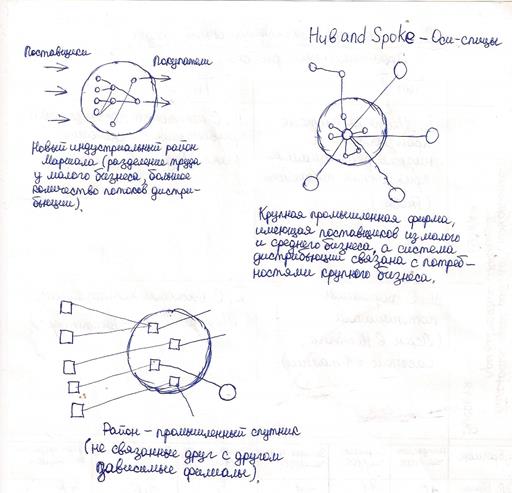 Поставщики
Покупатели
Новый индустриальный район
Маршала (разделение труда
у малого бизнеса, большое
количество потоков дистри-
бьюции).
Hub and Spoke – Оси-спицы
Крупная промышленная фирма,
имеющая поставщиков из малого
и среднего бизнеса, а система
дистрибьюций связана с потреб-
ностями крупного бизнеса.
Район – промышленный спутник
(не связанные друг с другом
зависимые филиалы).